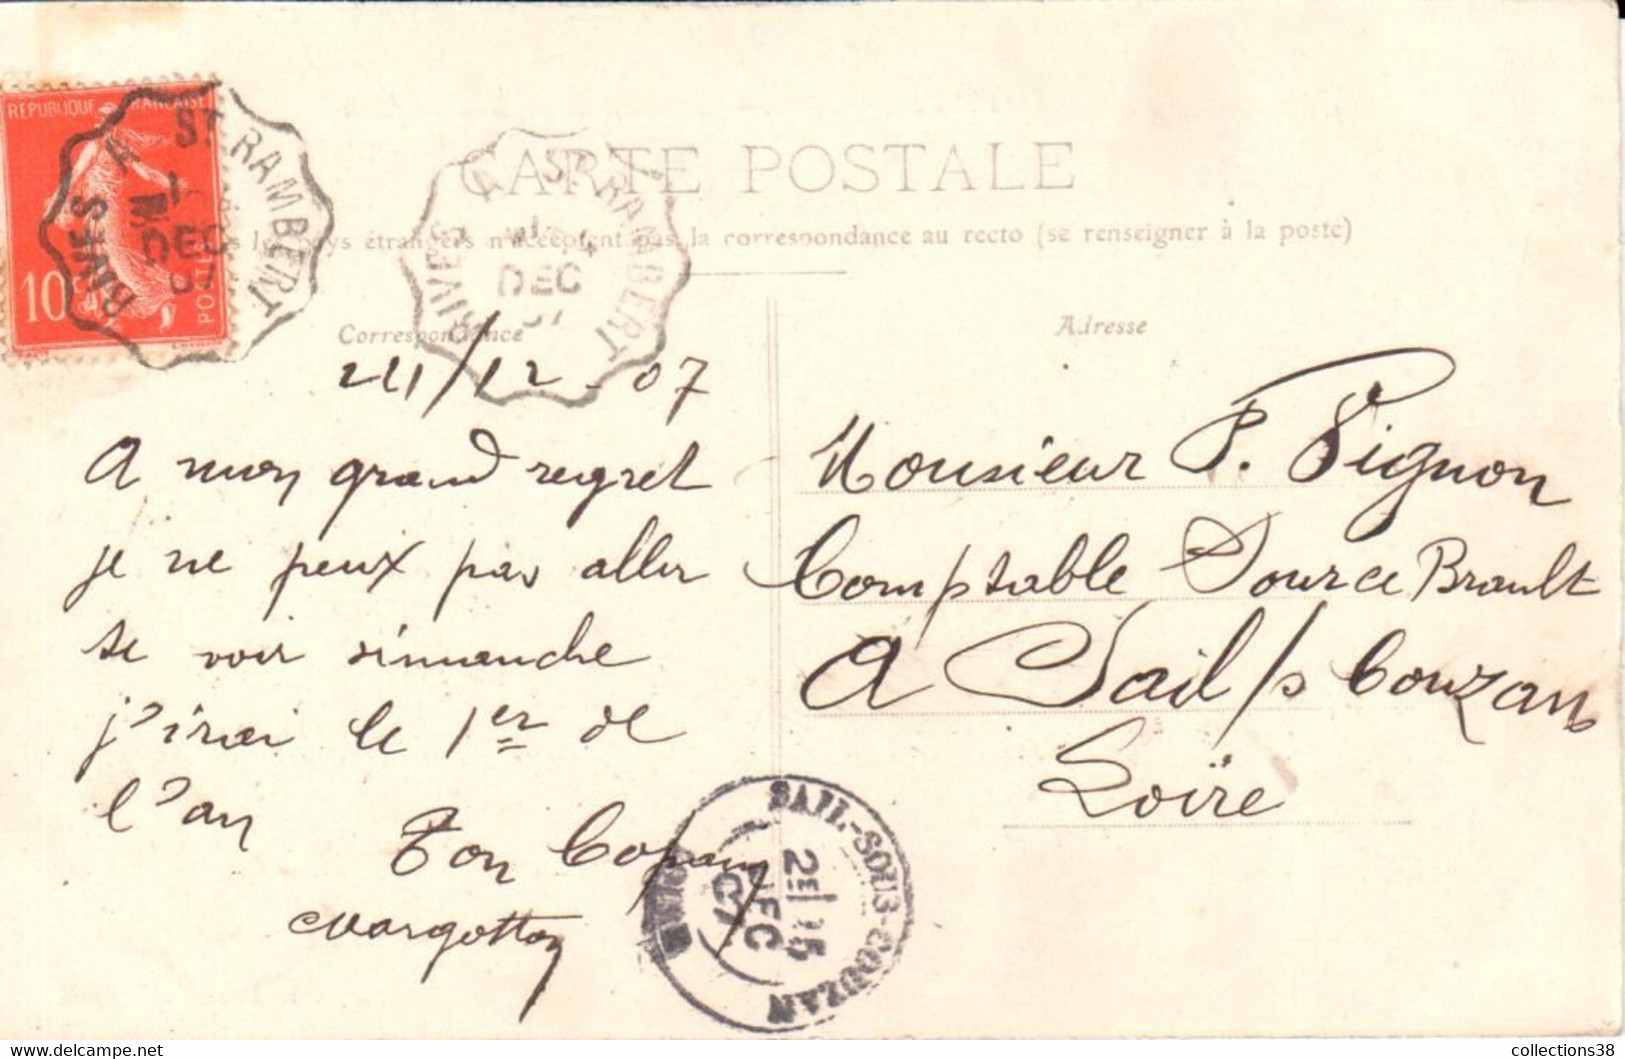 REPUBLIQUE FRANÇAISE
10
POSTES
RIVES A ST-RAMBERT
DEC
07
RIVES A ST-RAMBERT
DEC
CARTE POSTALE
pays étrangers n'acceptent pas la correspondance au recto (se renseigner à la poste)
Correspondance
24/12-07
A mon grand regret
je ne peux pas aller
te voir dimanche
j'irai le 1er de
l'an
Ton Copain
Margotton
Adresse
Monsieur P. Pignon
Comptable Source Brault
A Sail/s Couzan
Loire
SAIL-SOUS-COUZAN
2E 15
DEC
07
LOIRE
collections38